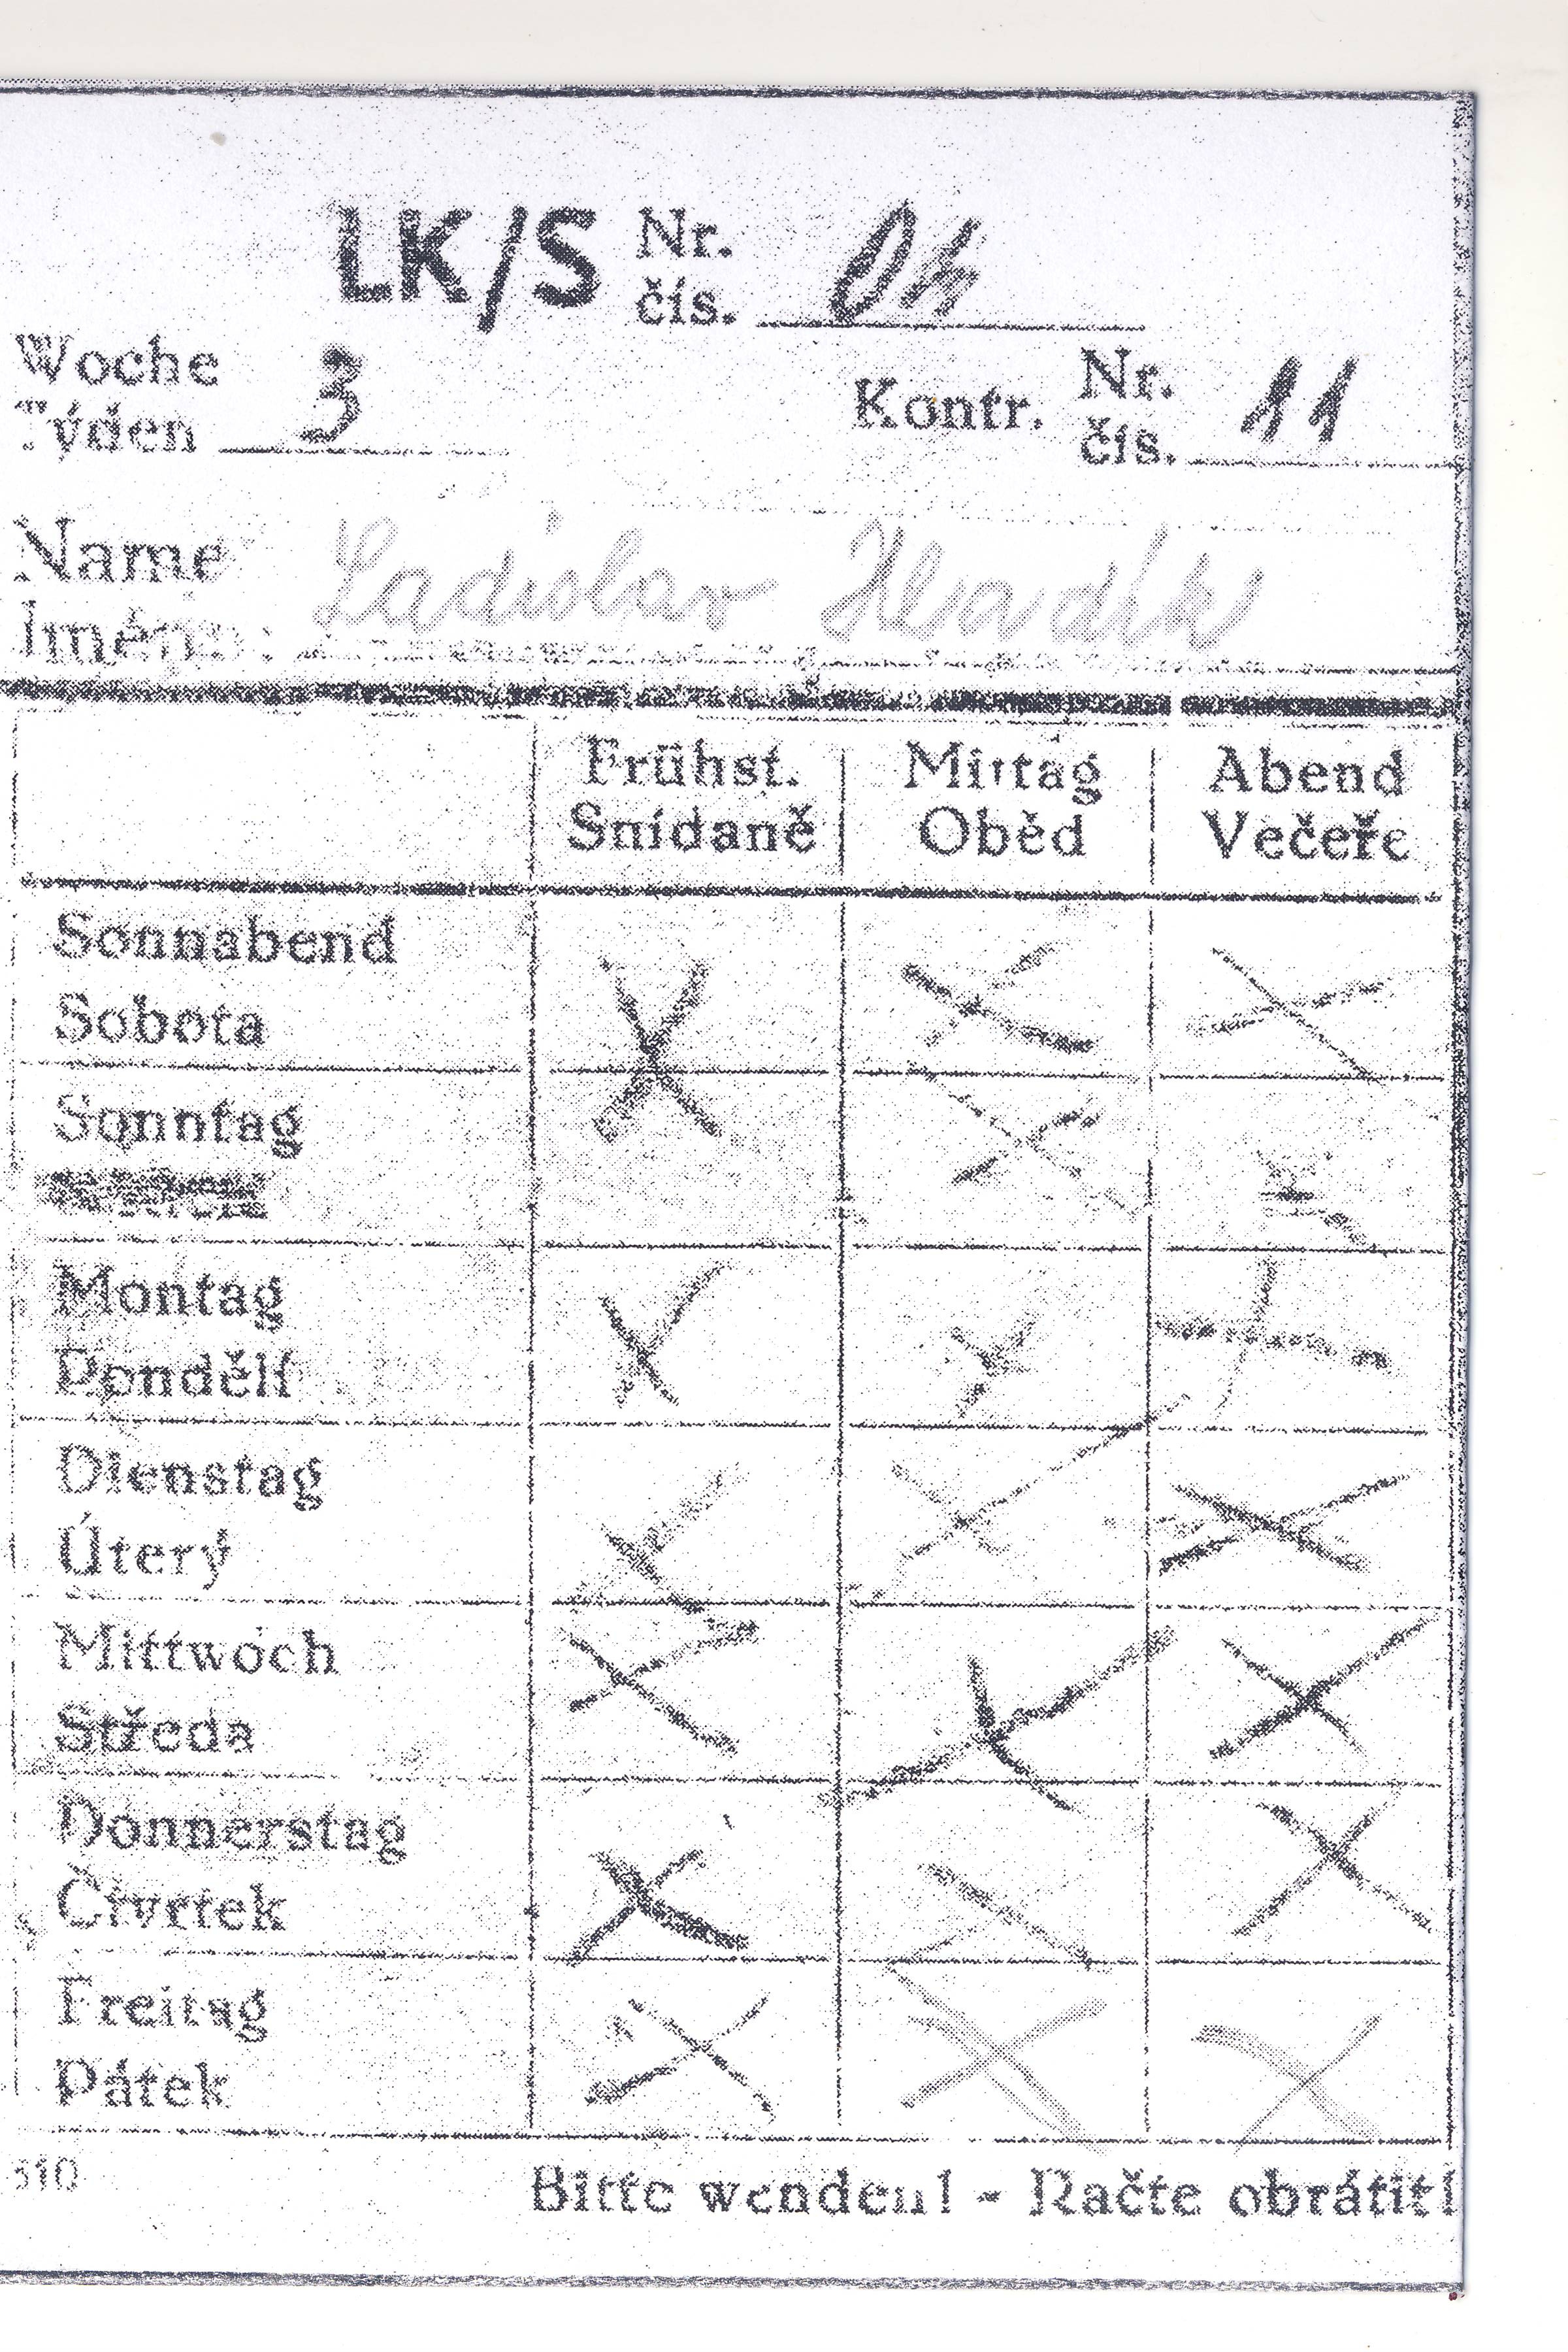 LK/S Nr.
čís.
Woche 3 Kontr. Nr. 11
Týden čís.
Name Ladislav
Jméno:
Frühst. Mittag Abend
Snídaně Oběd Večeře
Sonnabend
Sobota
Sonntag
Montag
Pondělí
Dienstag
Úterý
Mittwoch
Středa
Donnerstag
Čtvrtek
Freitag
Pátek
310
Bitte wenden! - Račte obrátit!